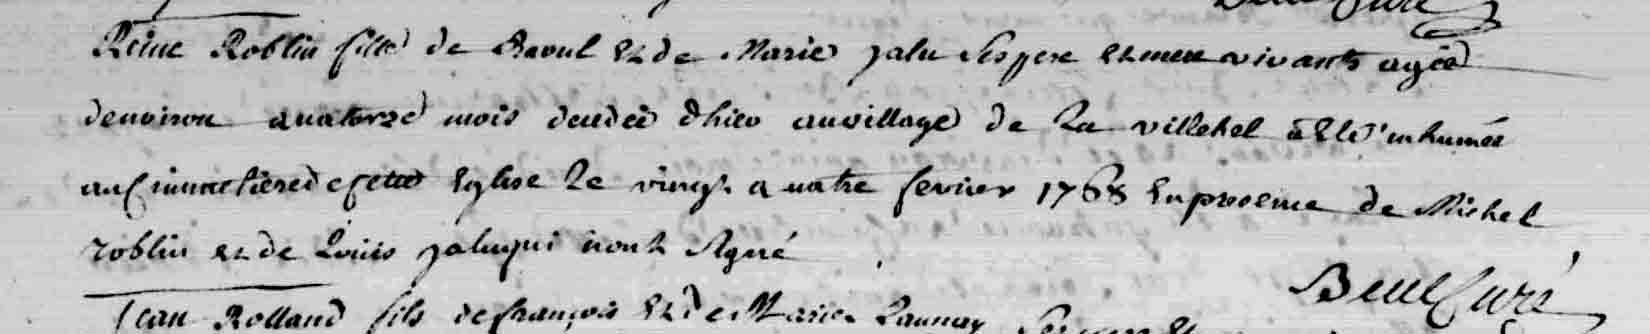 Reine Roblin fille de Raoul et de Marie jalu ses pere et mere vivants agée
denviron quatorze mois decedée dhier au village de La villehel a été inhumée
au cimmetiere de cette Eglise le vingt quatre fevrier 1768 En presence de Michel
roblin et de Louis jalu qui n'ont signé
curé
Jean Rolland fils de françois et de Marie Launay